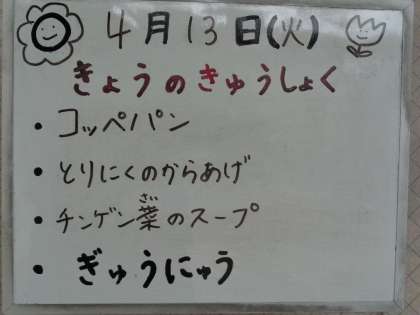 4月13日(火)
きょうのきゅうしょく
・コッペパン
・とりにくのからあげ
・チンゲン菜のスープ
ざい
・ぎゅうにゅう